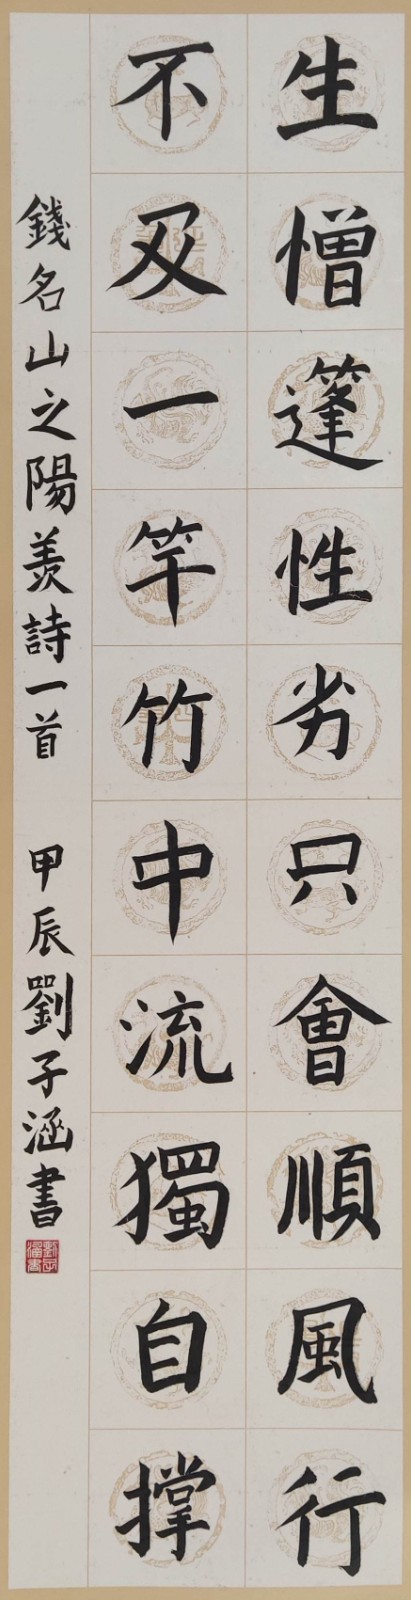 生憎篷性劣只會順風行
不及一竿竹中流獨自撑
錢名山之陽羨詩一首 甲辰劉子涵書
劉子涵書